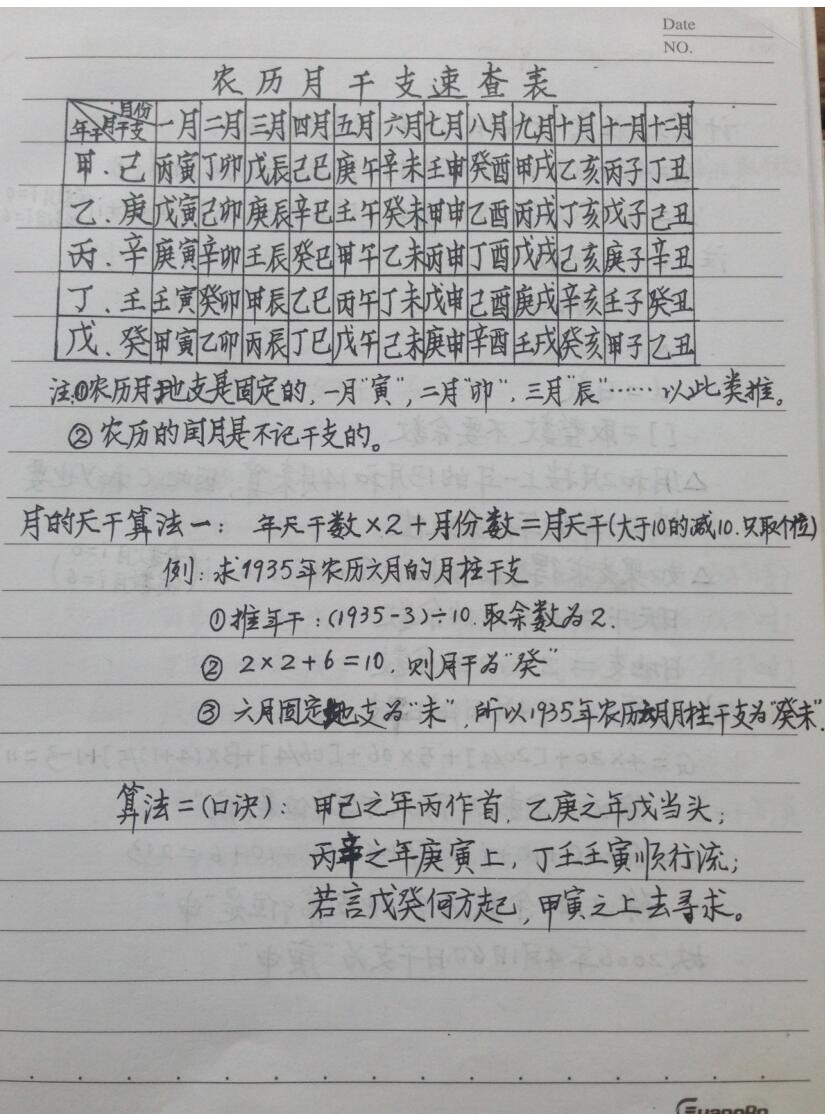 Date
NO.
农历月干支速查表
年干 月干支 月份 一月 二月 三月 四月 五月 六月 七月 八月 九月 十月 十一月 十二月
甲、己 丙寅 丁卯 戊辰 己巳 庚午 辛未 壬申 癸酉 甲戌 乙亥 丙子 丁丑
乙、庚 戊寅 己卯 庚辰 辛巳 壬午 癸未 甲申 乙酉 丙戌 丁亥 戊子 己丑
丙、辛 庚寅 辛卯 壬辰 癸巳 甲午 乙未 丙申 丁酉 戊戌 己亥 庚子 辛丑
丁、壬 壬寅 癸卯 甲辰 乙巳 丙午 丁未 戊申 己酉 庚戌 辛亥 壬子 癸丑
戊、癸 甲寅 乙卯 丙辰 丁巳 戊午 己未 庚申 辛酉 壬戌 癸亥 甲子 乙丑
注:①农历月地支是固定的,一月"寅",二月"卯",三月"辰"……以此类推。
②农历的闰月是不记干支的。
月的天干算法一: 年天干数×2+月份数=月天干(大于10的减10.只取个位)
例:求1935年农历六月的月柱干支
①推年干:(1935-3)÷10.取余数为2.
② 2×2+6=10.则月干为"癸"
③ 六月固定地支为"未",所以1935年农历六月月柱干支为"癸未".
算法二(口诀): 甲己之年丙作首,乙庚之年戊当头;
丙辛之年庚寅上,丁壬壬寅顺行流;
若言戊癸何方起,甲寅之上去寻求。
GuangBo